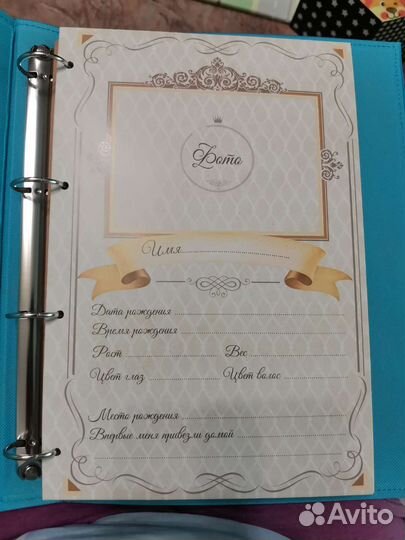 Фото
Имя
Дата рождения
Время рождения
Рост Вес
Цвет глаз Цвет волос
Место рождения
Впервые меня привезли домой
Avito